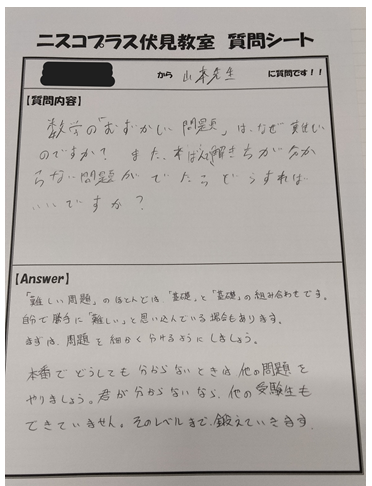 ニスコプラス伏見教室 質問シート
から 山本先生 に質問です！！
【質問内容】
数学の「むずかしい問題」は、なぜ難しい
のですか？ また、解き方が分か
らない問題がでたらどうすれば
いいですか？
【Answer】
「難しい問題」のほとんどは、「基礎」と「基礎」の組み合わせです。
自分で勝手に「難しい」と思い込んでいる場合もあります。
まずは、問題を細かく分けるようにしましょう。
本番でどうしても分からないときは、他の問題を
やりましょう。君が分からないなら、他の受験生も
できていません。そのレベルまで、鍛えていきます。